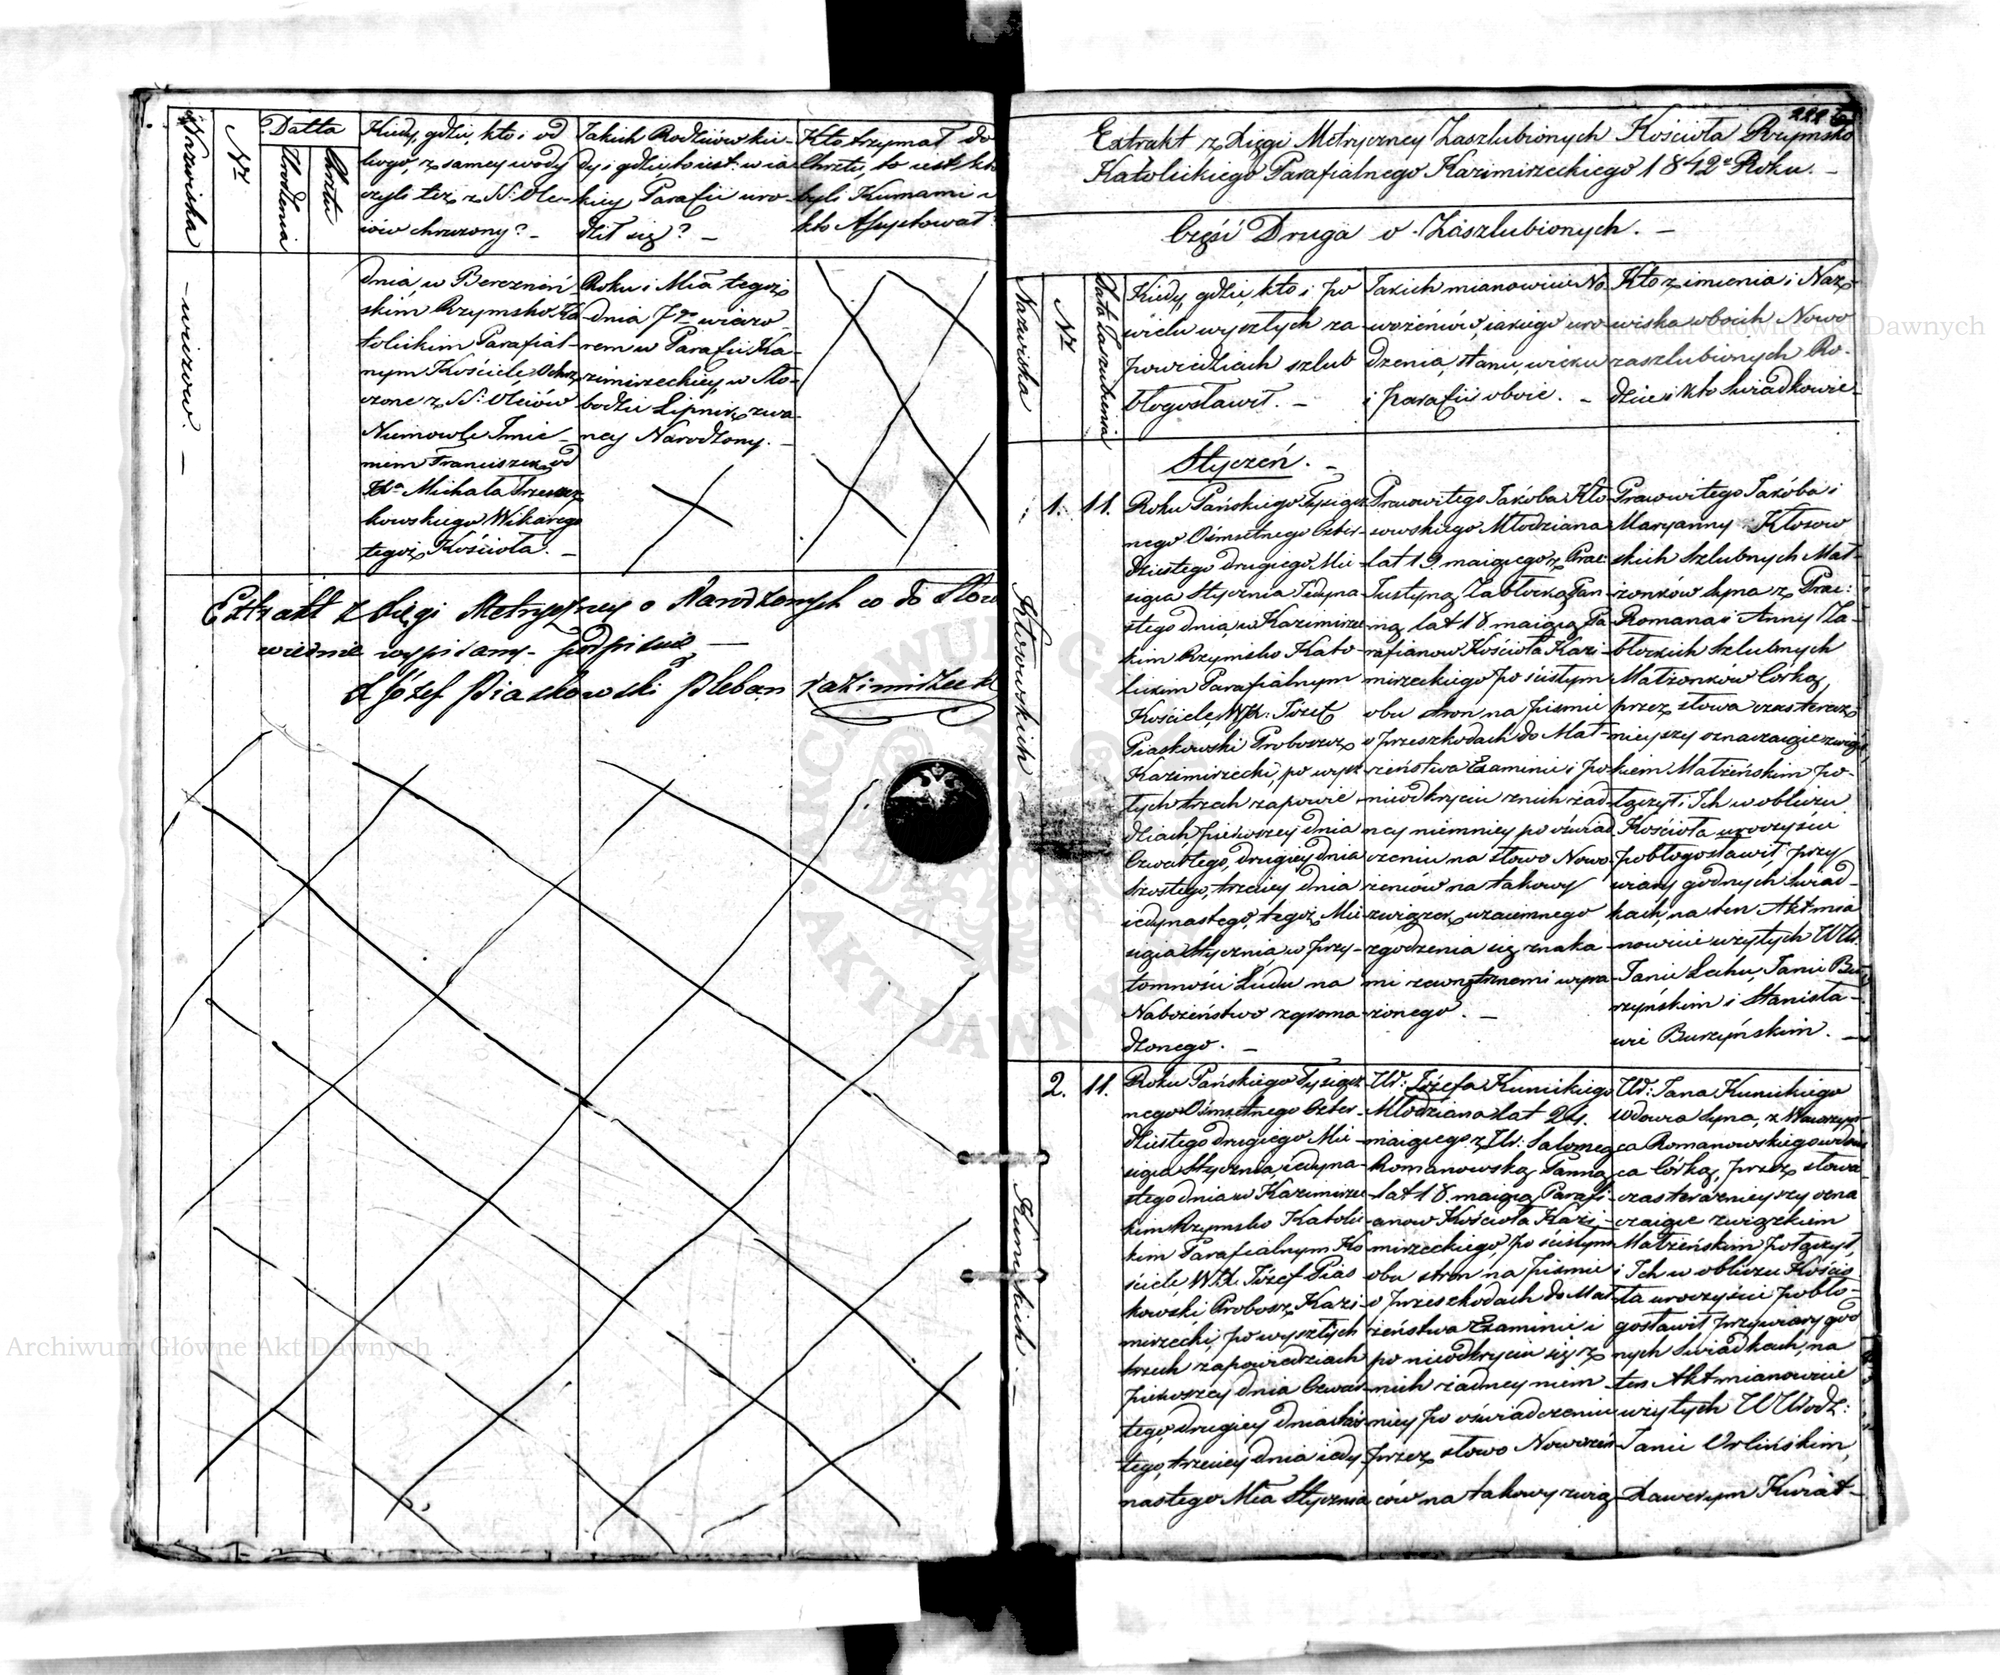 Nazwiska
Nr
Datta
Urodzenia
Chrztu
Kiedy, gdzie, kto i od
kogo, z samey wody
czyli też z SS: Ole-
iów chrzczony? –
Jakich Rodziców kie-
dy i gdzie, to iest: w ia-
kiey Parafii uro-
dził się? –
Kto trzymał do
Chrztu, to iest kto
byli Kumami i
kto Assystował
– wiczow. –
dnia, w Berezneń-
skim Rzymsko Ka-
tolickim Parafial-
nym Kościele, Ochrz-
czone z SS: Oleiów
Niemowle Imie-
niem Franciszek od
Xa Michała
kowskiego Wikarego
tegoż Kościoła. –
Roku i Mca tegoż
dnia 7go wieczo-
rem w Parafii Ka-
zimirzeckiey, w Sło-
bodzie Lipnik zwa-
ney Narodzony. –
Extrakt z Xięgi Metryczney o Narodzonych co do słowa
wiernie wypisany podpisuię –
X Józef Piaskowski Pleban Kazimirzecki
Extrakt z Xięgi Metryczney Zaszlubionych Kościoła Rzymsko
Katolickiego Parafialnego Kazimirzeckiego 1842o Roku. –
Część Druga o Zaszlubionych. –
Nazwiska
Nr
Data Zaszlubienia
Kiedy, gdzie, kto i po
wielu wyszłych za-
powiedziach szlub
błogosławił. –
Jakich mianowicie No-
wożeńców, iakiego uro-
dzenia, stanu, wieku
i parafii oboie. –
Kto z imienia i Naz-
wiska oboich Nowo
zaszlubionych Ro-
dzice i kto Swiadkowie –
Styczeń. –
Kłosowskich –
1.
11.
Roku Pańskiego Tysiącz-
nego Ośmsetnego Czter-
dziestego drugiego Mie-
siąca Stycznia Jedyna-
stego dnia, w Kazimirzec-
kim Rzymsko Kato-
lickim Parafialnym
Kościele, WX: Józef
Piaskowski Proboszcz
Kazimirzecki, po wysz-
łych trzech zapowie-
dziach, pierwszey dnia
Czwartego, drugiey dnia
szóstego, trzeciey dnia
iedynastego, tegoż Mie-
siąca Stycznia, w przy-
tomności Ludu na
Nabożeństwo zgroma-
dzonego. –
Prawowitego Jakóba Kło-
sowskiego Młodziana
lat 19. maiącego z Prac:
Justyną Zabłocką Pan-
ną lat 18 maiącą Pa-
rafianow Kościoła Kazi-
mirzeckiego po scisłym
obu stron na piśmie
o przeszkodach do Mał-
żeństwa Examinie i po
nieodkryciu z nich żad-
ney niemniey po oświad-
czeniu na słowo Nowo-
żeńców na takowy
związek wzaiemnego
zgodzenia się znaka-
mi zewnętrznemi wyra-
żonego. –
Prawowitego Jakóba i
Maryanny Kłosow-
skich Szlubnych Mał-
żonków Syna z Prac:
Romana i Anny Za-
błockich Szlubnych
Małżonków Córką,
przez słowa czas teraz-
nieyszy oznaczaiące związ-
kiem Małżeńskim po-
łączył i Ich w obliczu
Kościoła uroczyście
pobłogosławił, przy
wiary godnych Swiad-
kach, na ten Akt mia-
nowicie użytych WW.
Janie Lechu, Janie Bu-
rzyńskim i Stanisła-
wie Burzyńskim. –
Kunickich. –
2.
11.
Roku Pańskiego Tysiącz-
nego Ośmsetnego Czter-
dziestego drugiego Mie-
siąca Stycznia, iedyna-
stego dnia w Kazimirzec-
kim Rzymsko Katolic-
kim Parafialnym Ko-
ściele, WX. Józef Pias-
kowski Probosz Kazi-
mirzecki, po wyszłych
trzech zapowiedziach
pierwszey dnia Czwar-
tego, drugiey dnia szós-
tego, trzeciey dnia iedy-
nastego Mca Stycznia
Ur: Józefa Kunickiego
Młodziana lat 24.
maiącego z Ur: Salomeą
Romanowską Panną
lat 18. maiącą Parafi-
anow Kościoła Kazi-
mirzeckiego, po scisłym
obu stron na piśmie
o przeszkodach do Mał-
żeństwa Examinie i
po nieodkryciu się z
nich żadney niem-
niey po oświadczeniu
przez słowo Nowożeń-
ców na takowy związ-
Ur: Jana Kunickiego
Wdowca Syna, z Wawrzyń-
ca Romanowskiego wdow-
ca Córką, przez słowa
czas teraznieyszy ozna-
czaiące związkiem
Małżeńskim połączył,
i Ich w obliczu Kościo-
ła uroczyście pobło-
gosławił, przy wiary god-
nych Swiadkach, na
ten Akt mianowicie
użytych WWrodz:
Janie Orlińskim,
Xawerym Kwiat-
Archiwum Główne Akt Dawnych
Archiwum Główne Akt Dawnych